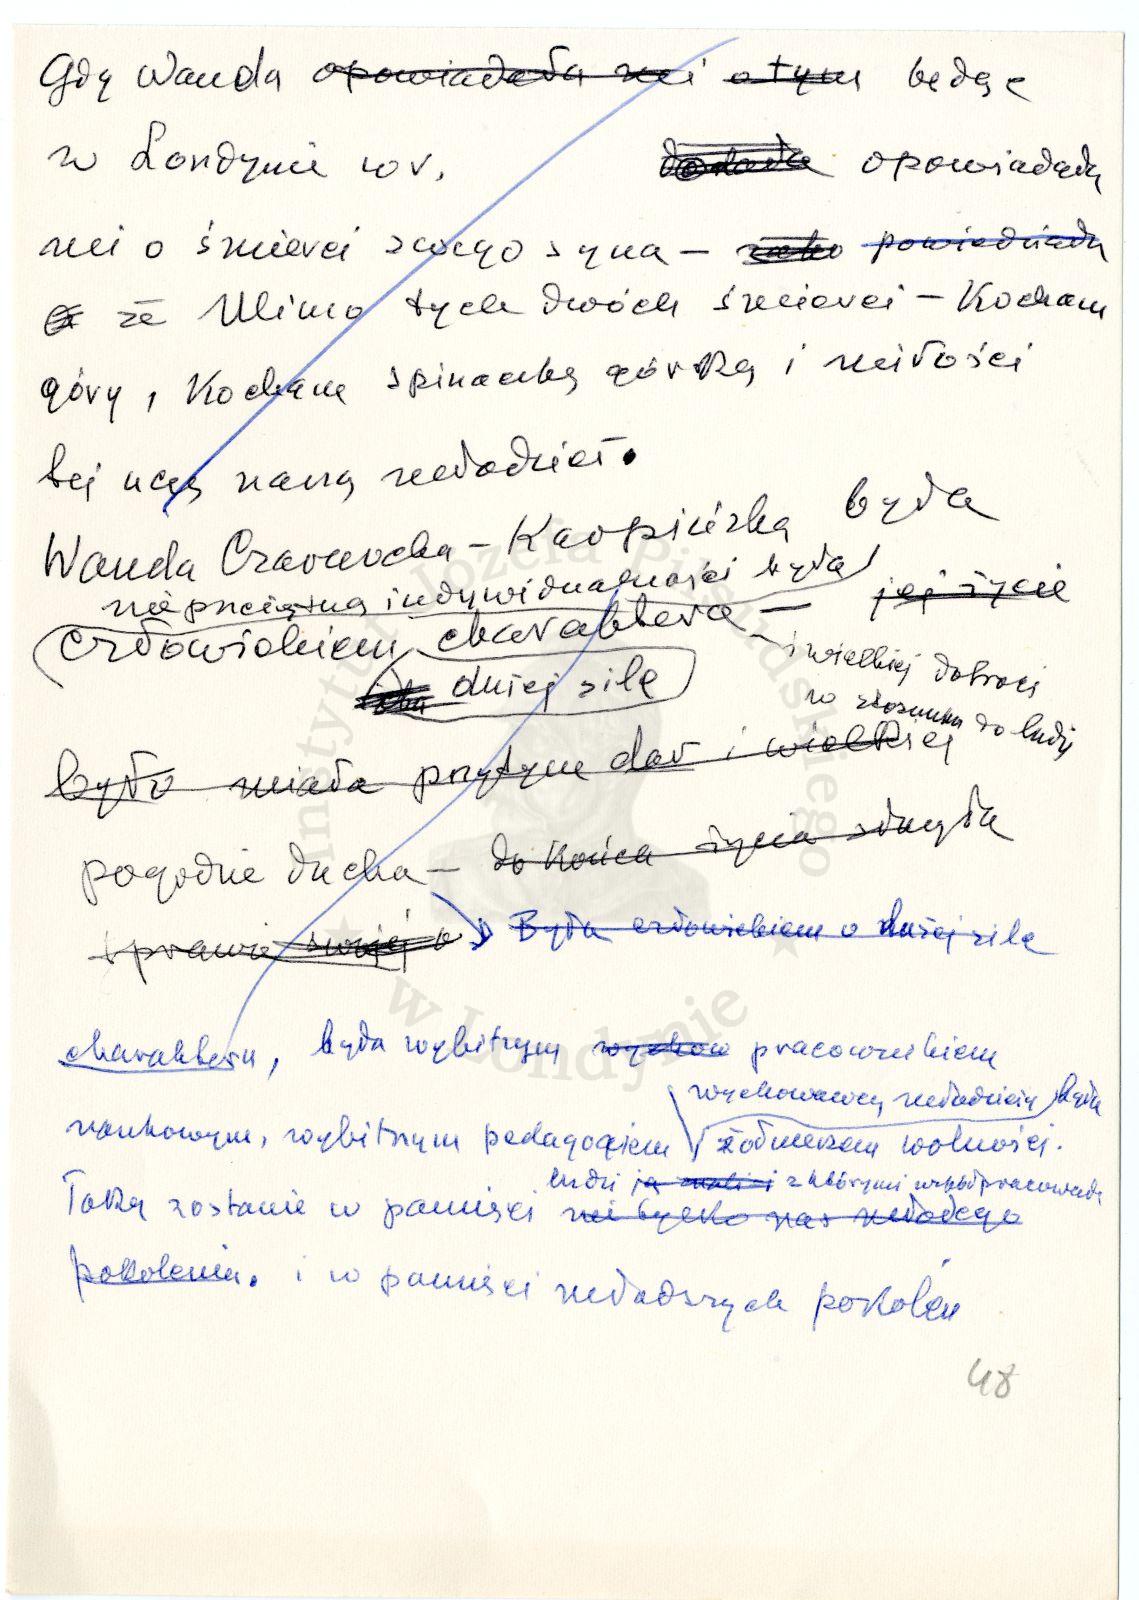 Gdy Wanda opowiadała mi o tym będąc
w Londynie w r. dodała opowiadała
mi o śmierci swego syna – powiedziała
że Mimo tych dwóch śmierci – Kocham
góry, Kocham spinaczkę górską i miłości
tej uczę naszą młodzież.
Wanda Czarnocka-Karpińska była
nieprzeciętną indywidualności była
człowiekiem charakteru – jej życie
dużej sile
i wielkiej dobroci
w stosunku do ludzi
było miała przytym dar i wielkiej
pogodzie ducha – do końca życia służyła
sprawie swojej
Była człowiekiem o dużej sile
charakteru, była wybitnym wychow pracownikiem
wychowawcą młodzieży była
naukowym, wybitnym pedagogiem żołnierzem wolności.
ludzi ją znali i z którymi współpracowała
Taką zostanie w pamięci nie tylko nas młodego
pokolenia. i w pamięci młodszych pokoleń
48
Instytut Józefa Piłsudskiego
w Londynie